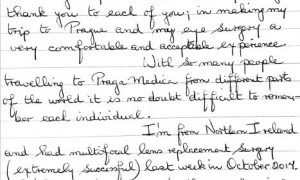 thank you to each of you; in making my
trip to Prague and may eye surgery a
very comfortable and acceptable experience
With so many people
travelling to Praga Medica from different parts
of the world it is no doubt difficult to remem-
ber each individual.
I'm from Northern Ireland
and had multifocal lens replacement surgery
(extremely successful) last week in October 2017.